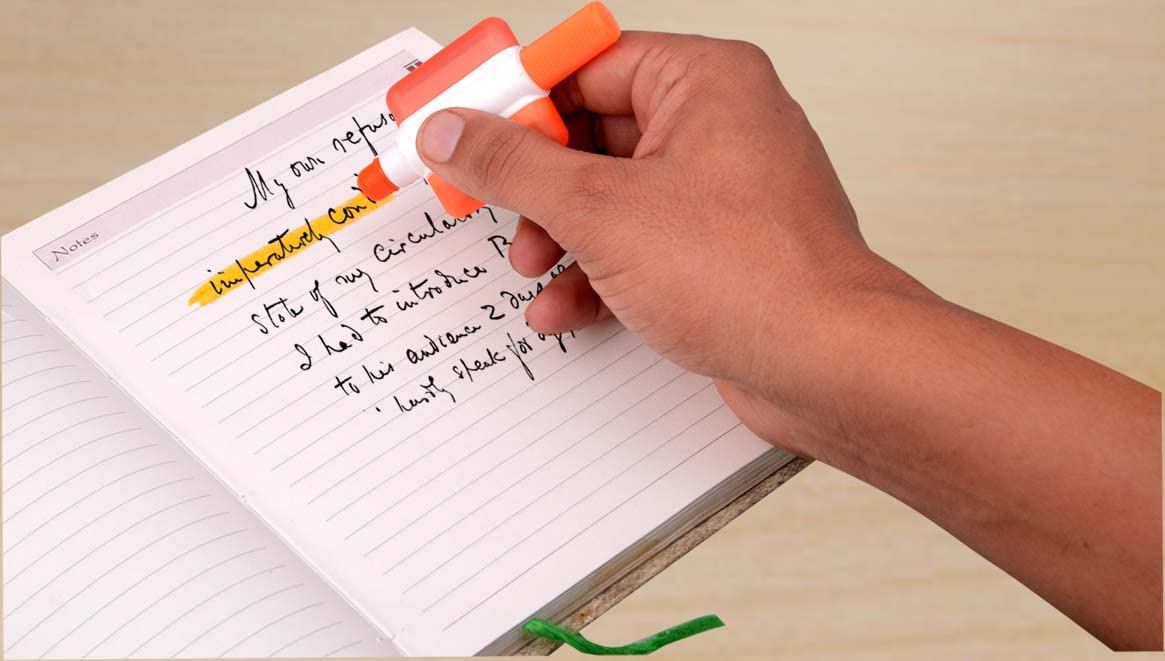 Notes
My own refus
imperatively con
State of my circular
I had to introduce B
to his audience 2 days
hardly speak for